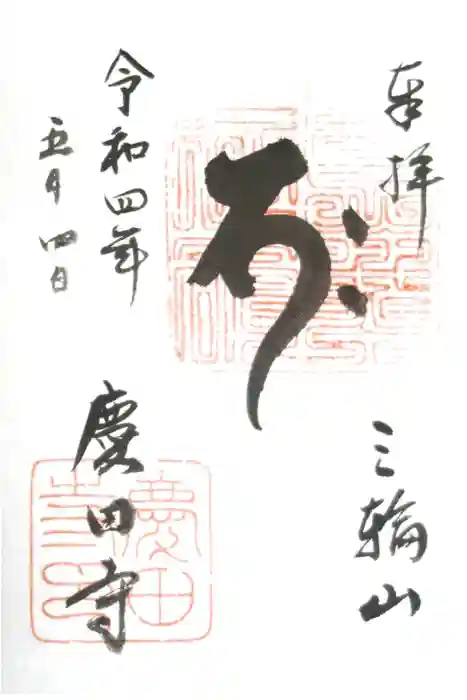 奉拝
三輪山
令和四年
五月四日
慶田寺